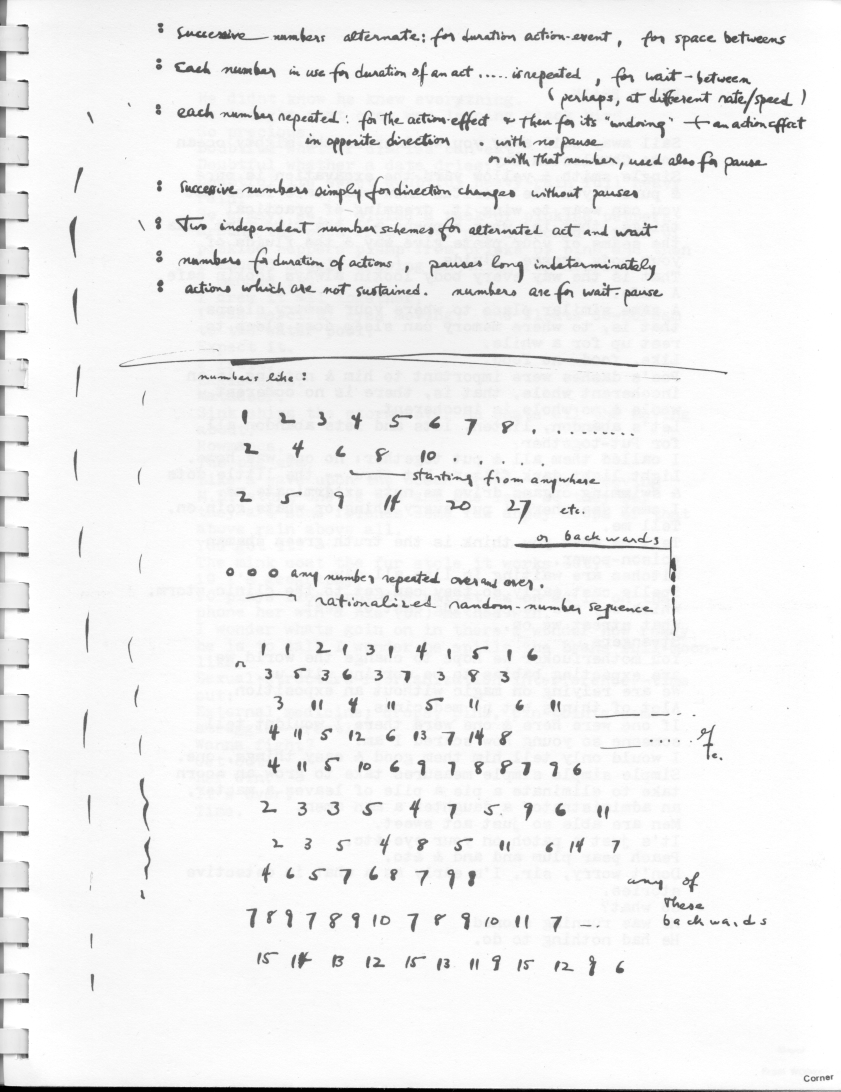 : Successive numbers alternate: for duration action-event, for space betweens
: Each number in use for duration of an act ..... is repeated, for wait-between
( perhaps, at different rate/speed )
: each number repeated: for the action-effect & then for its "undoing" + an action effect
in opposite direction . with no pause
or with that number, used also for pause
: Succesive numbers simply for direction changes without pauses
: Two independent number schemes for alternated act and wait
: numbers for duration of actions, pauses long indeterminately
: actions which are not sustained. numbers are for wait-pause
numbers like:
1 2 3 4 5 6 7 8 . . . . . . . . .
2 4 6 8 10 . . . . .
starting from anywhere
2 5 9 14 20 27 etc.
or backwards
o o o any number repeated over and over.
rationalized random-number sequence
1 1 2 1 3 1 4 1 5 1 6
3 5 3 6 3 7 3 8 3
3 11 4 11 5 11 6 11
4 11 5 12 6 13 7 14 8
etc.
4 11 5 10 6 9 7 8 8 7 9 6
2 3 3 5 4 7 5 9 6 11
2 3 5 4 8 5 11 6 14 7
4 6 5 7 6 8 7 9 8
any of
these
backwards
7 8 9 7 8 9 10 7 8 9 10 11 7 —.
15 14 13 12 15 13 11 9 15 12 9 6
Corner